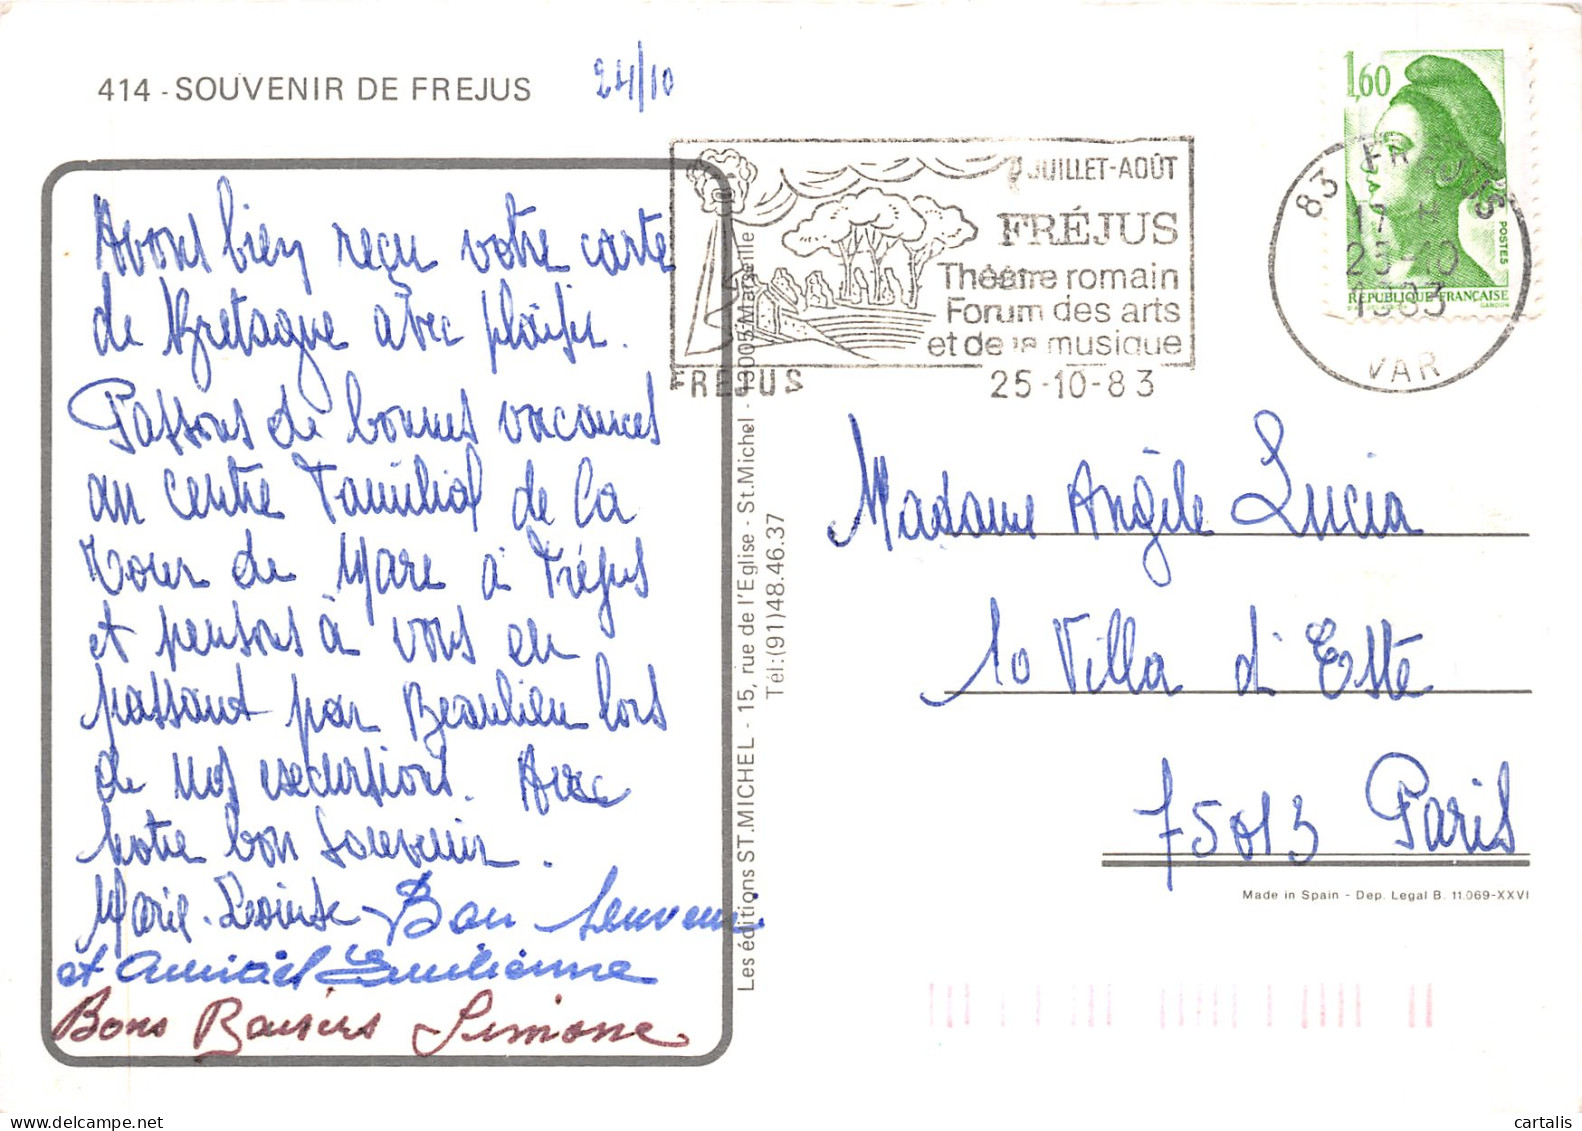 414 - SOUVENIR DE FREJUS
24/10
Avons bien reçu votre carte
de Bretagne avec plaisir.
Passons de bonnes vacances
au centre Familial de la
Tour de Mare à Fréjus
et pensons à vous en
passant par Beaulieu lors
de nos excursions. Avec
notre bon souvenir.
Marie-Louise Bon souvenir
et Amitiés Emilienne
Bons Baisers Simone
Les éditions ST.MICHEL - 15, rue de l'Eglise - St.Michel - 13005 Marseille
Tél:(91)48.46.37
JUILLET-AOÛT
FRÉJUS
Théâtre romain
Forum des arts
et de la musique
FREJUS 25-10-83
1,60
POSTES
REPUBLIQUE FRANÇAISE
GANDON
83 FREJUS
17 H
25-10
1983
VAR
Madame Angèle Lucia
10 Villa d'Este
75013 Paris
Made in Spain - Dep. Legal B. 11.069-XXVI
cartalis